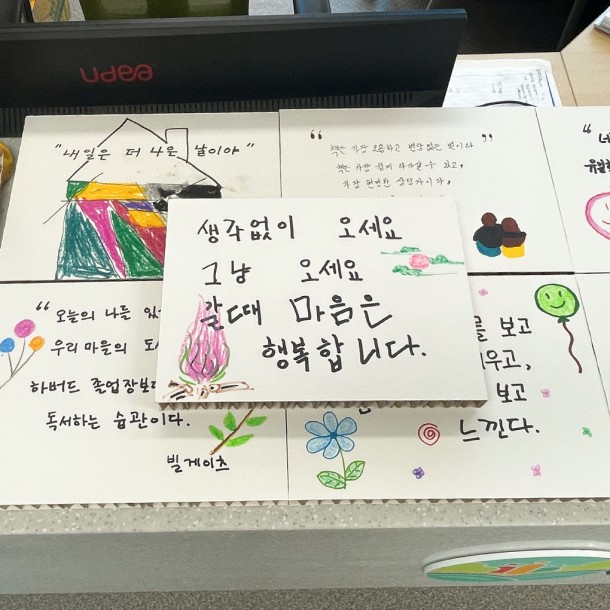 udea
"내일은 더 나은 날이야"
책은 가장 조용하고 변함 없는 벗이다
책은 가장 쉽게 다가갈 수 있고,
가장 현명한 상담자이자,
"
생각없이 오세요
그냥 오세요
갈때 마음은
행복합니다.
"오늘의 나를
우리마을의
하버드 졸업장보다
독서하는 습관이다.
빌게이츠
를 보고
우고,
보고
느낀다.